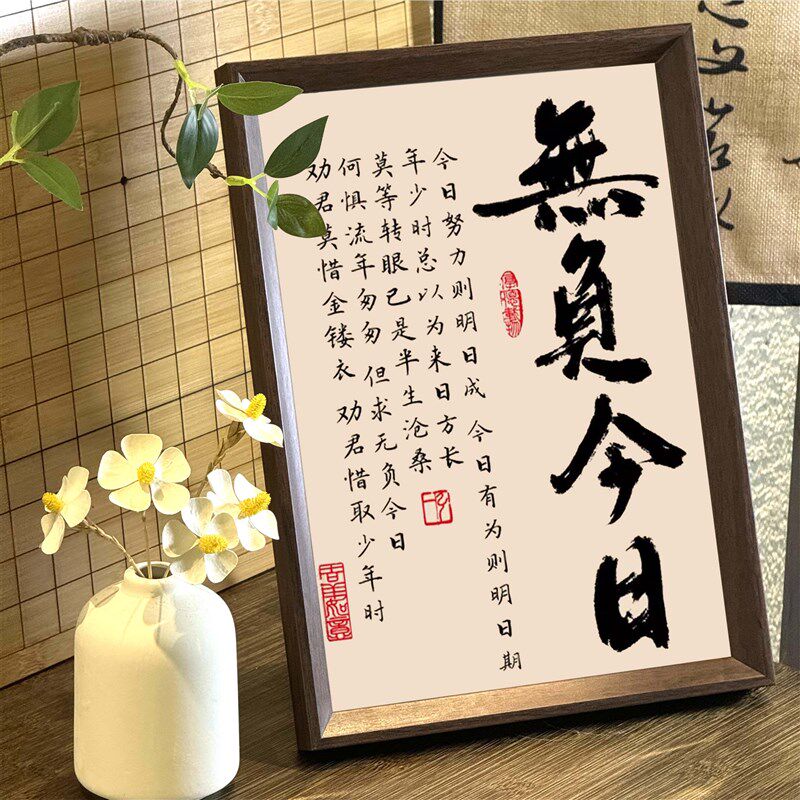 無負今日
今日努力则明日成 今日有为则明日期
年少时总以为来日方长
莫等转眼已是半生沧桑
何惧流年匆匆 但求无负今日
劝君莫惜金镂衣 劝君惜取少年时